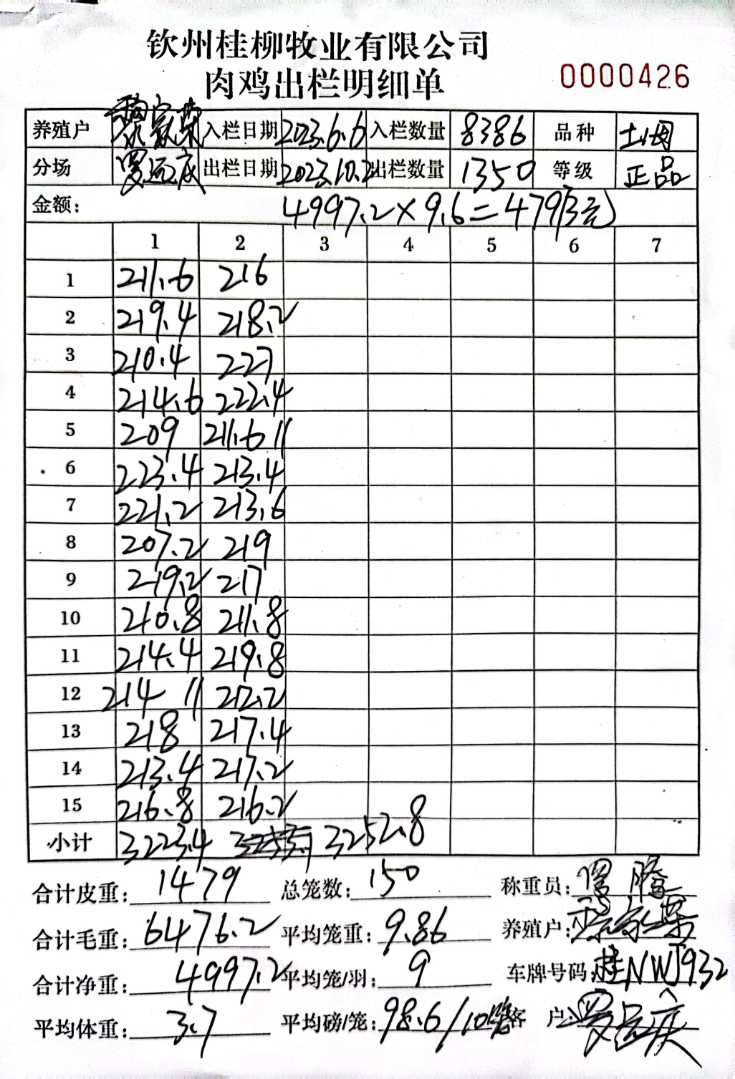 钦州桂柳牧业有限公司
肉鸡出栏明细单 0000426
养殖户 入栏日期 2023.6.6 入栏数量 8386 品种 土
分场 出栏日期 2023.10.2 出栏数量 1350 等级 正品
金额: 4997.2×9.6=47973元
1 2 3 4 5 6 7
1 211.6 216
2 219.4 218.2
3 210.4 227
4 214.6 222.4
5 209 211.6 11
6 223.4 213.4
7 221.2 213.6
8 207.2 219
9 219.2 217
10 210.8 211.8
11 214.4 219.8
12 214 11 212.2
13 218 217.4
14 213.4 217.2
15 216.8 216.2
小计 3223.4 3252.8
合计皮重: 1479 总笼数: 150 称重员:
合计毛重: 6476.2 平均笼重: 9.86 养殖户:
合计净重: 4997.2 平均笼/羽: 9 车牌号码: 桂NWJ932
平均体重: 3.7 平均磅/笼: 98.6/10笼 客户: